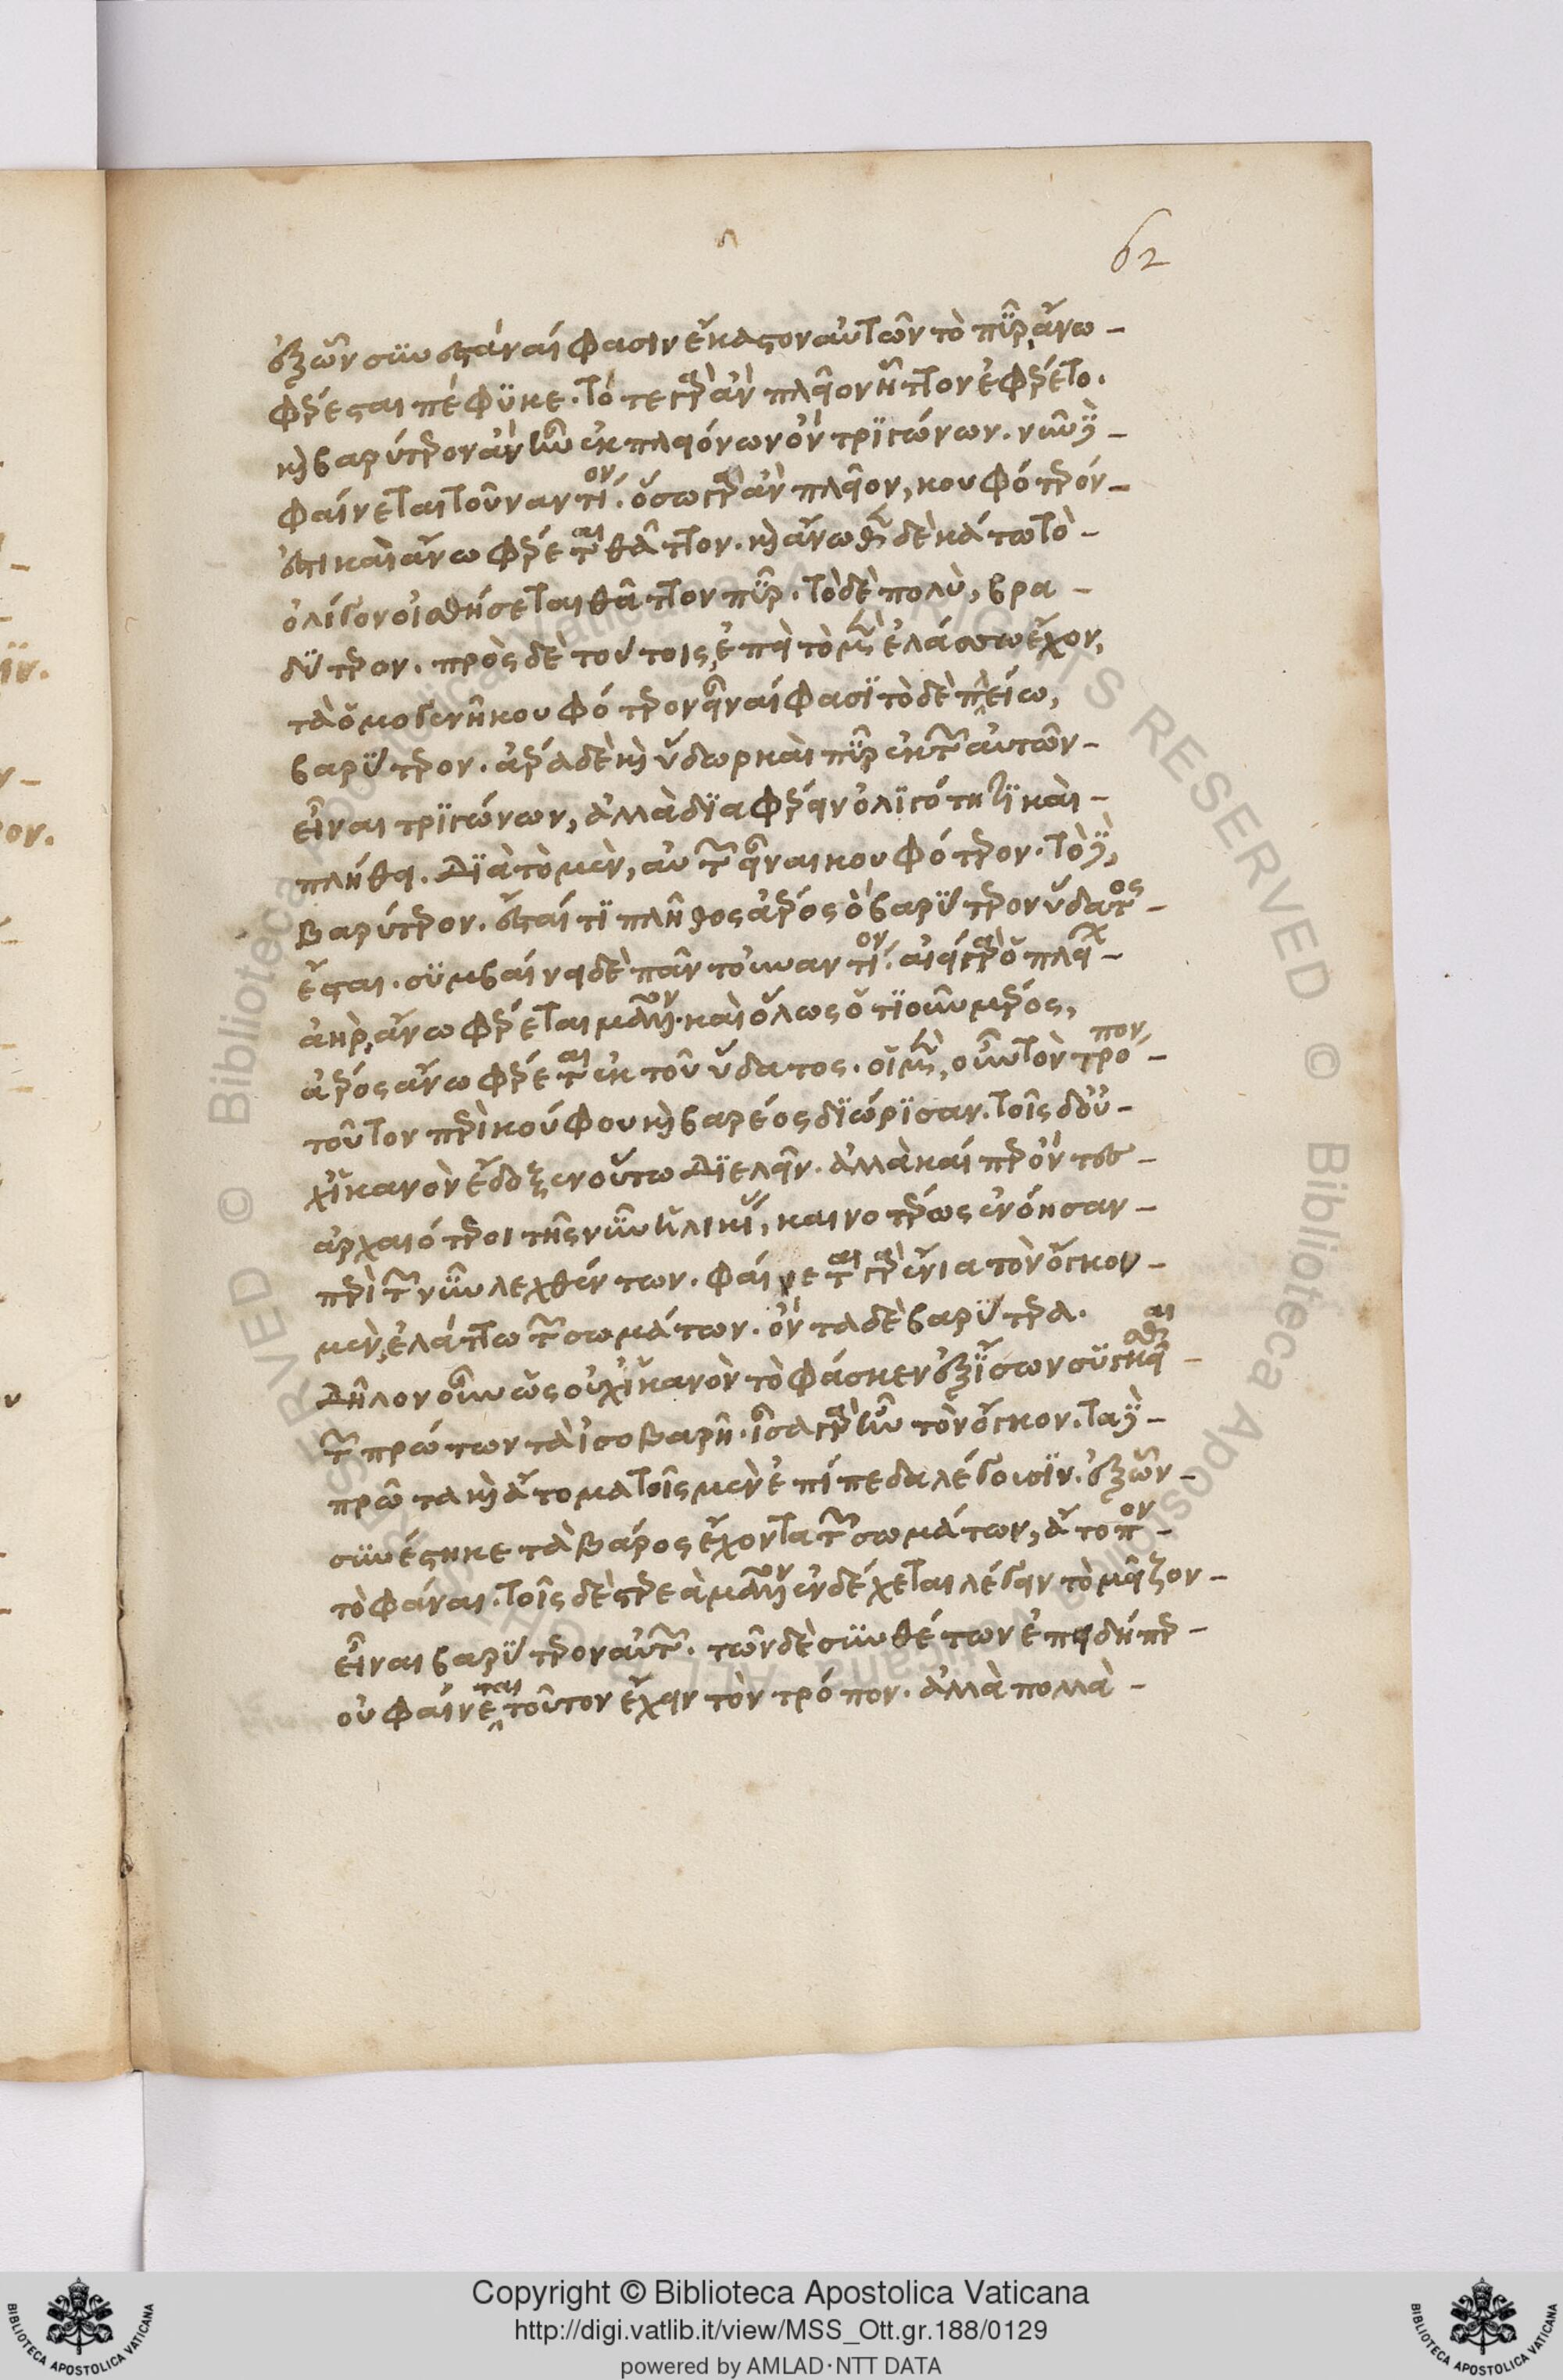 62
ἐξ ὧν συνεστάναί φασιν ἕκαστον αὐτῶν τὸ πῦρ, ἄνω –
φέρεσθαι πέφυκε. τό τε γὰρ ἂν πλεῖον ἧττον ἐφέρετο.
καὶ βαρύτερον ἂν ἦν ἐκ πλειόνων ὂν τριγώνων. νῦν δὲ –
φαίνεται τοὐναντίον. ὅσω γὰρ ἂν πλεῖον, κουφότερόν –
ἐστι καὶ ἄνω φέρεται θᾶττον. καὶ ἄνωθεν δὲ κάτω τὸ –
ὀλίγον οἰσθήσεται θᾶττον πῦρ. τὸ δὲ πολὺ, βρα –
δύτερον. πρὸς δὲ τούτοις, ἐπεὶ τὸ μὲν ἐλάσσω ἔχον,
τὰ ὁμογενῆ κουφότερον εἶναί φασι τὸ δὲ πλείω,
βαρύτερον. ἀέρα δὲ καὶ ὕδωρ καὶ πῦρ ἐκ τῶν αὐτῶν –
εἶναι τριγώνων, ἀλλὰ διαφέρειν ὀλιγότητι καὶ –
πλήθει. διὰ τὸ μὲν, αὐτῶν εἶναι κουφότερον. τὸ δὲ,
βαρύτερον. ἔσται τι πλῆθος ἀέρος ὃ βαρύτερον ὕδατος –
ἔσται. συμβαίνει δὲ πᾶν τοὐναντίον. αἰεὶ γὰρ ὁ πλείων –
ἀὴρ, ἄνω φέρεται μᾶλλον. καὶ ὅλως ὁτιοῦν μέρος,
ἀέρος ἄνω φέρεται ἐκ τοῦ ὕδατος. οἱ μὲν, οὖν τὸν τρόπον –
τοῦτον περὶ κούφου καὶ βαρέος διώρισαν. τοῖς δ' οὐ –
χ ἱκανὸν ἔδοξεν οὕτω διελεῖν. ἀλλὰ καίπερ ὄντες –
ἀρχαιότεροι τῆς νῦν ἡλικίας, καινοτέρως ἐνόησαν –
περὶ τῶν νῦν λεχθέντων. φαίνεται γὰρ ἔνια τὸν ὄγκον –
μὲν, ἐλάττω τῶν σωμάτων. ὄντα δὲ βαρύτερα.
δῆλον οὖν ὡς οὐχ ἱκανὸν τὸ φάσκειν ἐξ ἴσων συγκεῖσθαι –
τῶν πρώτων τὰ ἰσοβαρῆ. ἴσα γὰρ ἦν τὸν ὄγκον. τὰ δὲ –
πρῶτα καὶ ἄτομα τοῖς μὲν ἐπίπεδα λέγουσιν. ἐξ ὧν –
συνέστηκε τὰ βάρος ἔχοντα τῶν σωμάτων, ἄτοπον –
τὸ φάναι. τοῖς δὲ στερεὰ μᾶλλον ἐνδέχεται λέγειν τὸ μεῖζον –
εἶναι βαρύτερον αὐτῶν. τῶν δὲ συνθέτων ἐπειδήπερ –
οὐ φαίνεται τοῦτον ἔχειν τὸν τρόπον. ἀλλὰ πολλὰ –
Copyright © Biblioteca Apostolica Vaticana
http://digi.vatlib.it/view/MSS_Ott.gr.188/0129
powered by AMLAD·NTT DATA